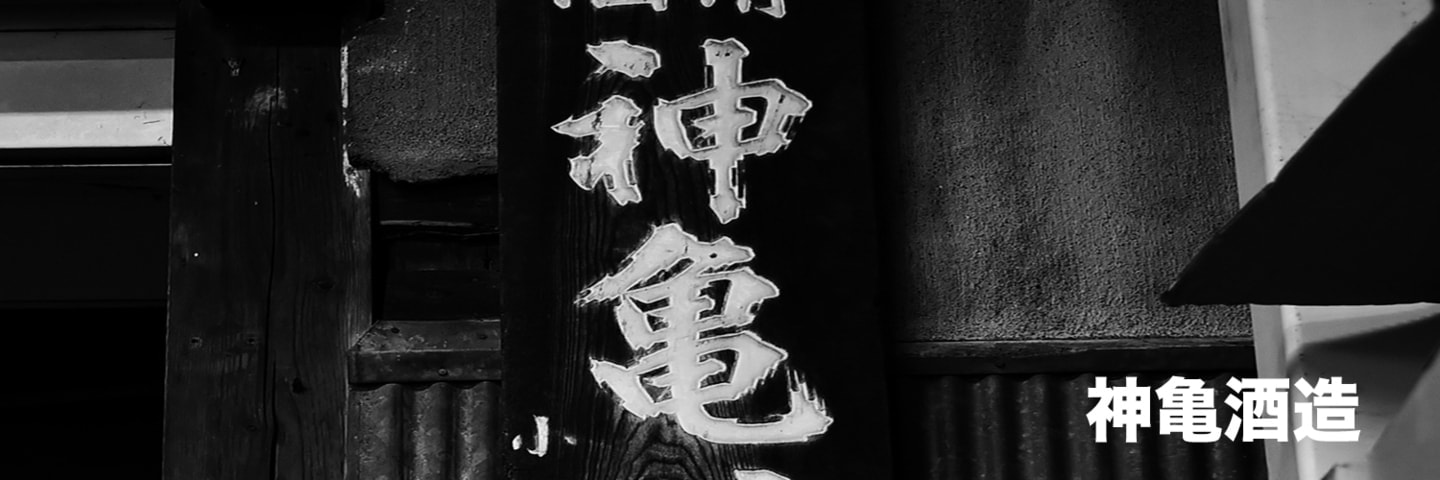 神亀
小
神亀酒造